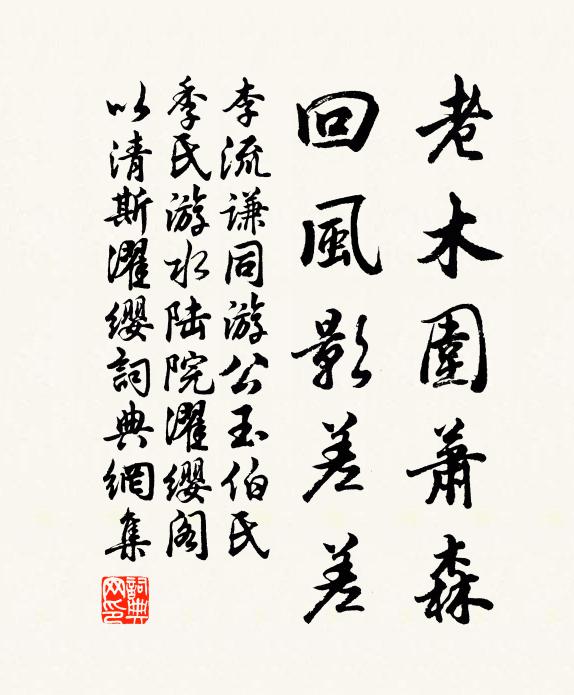 老木圍蕭森
回風影差差
李流謙同游公玉伯氏
季氏游水陸院濯纓閣
以清斯濯纓詞典網集
詞典網印